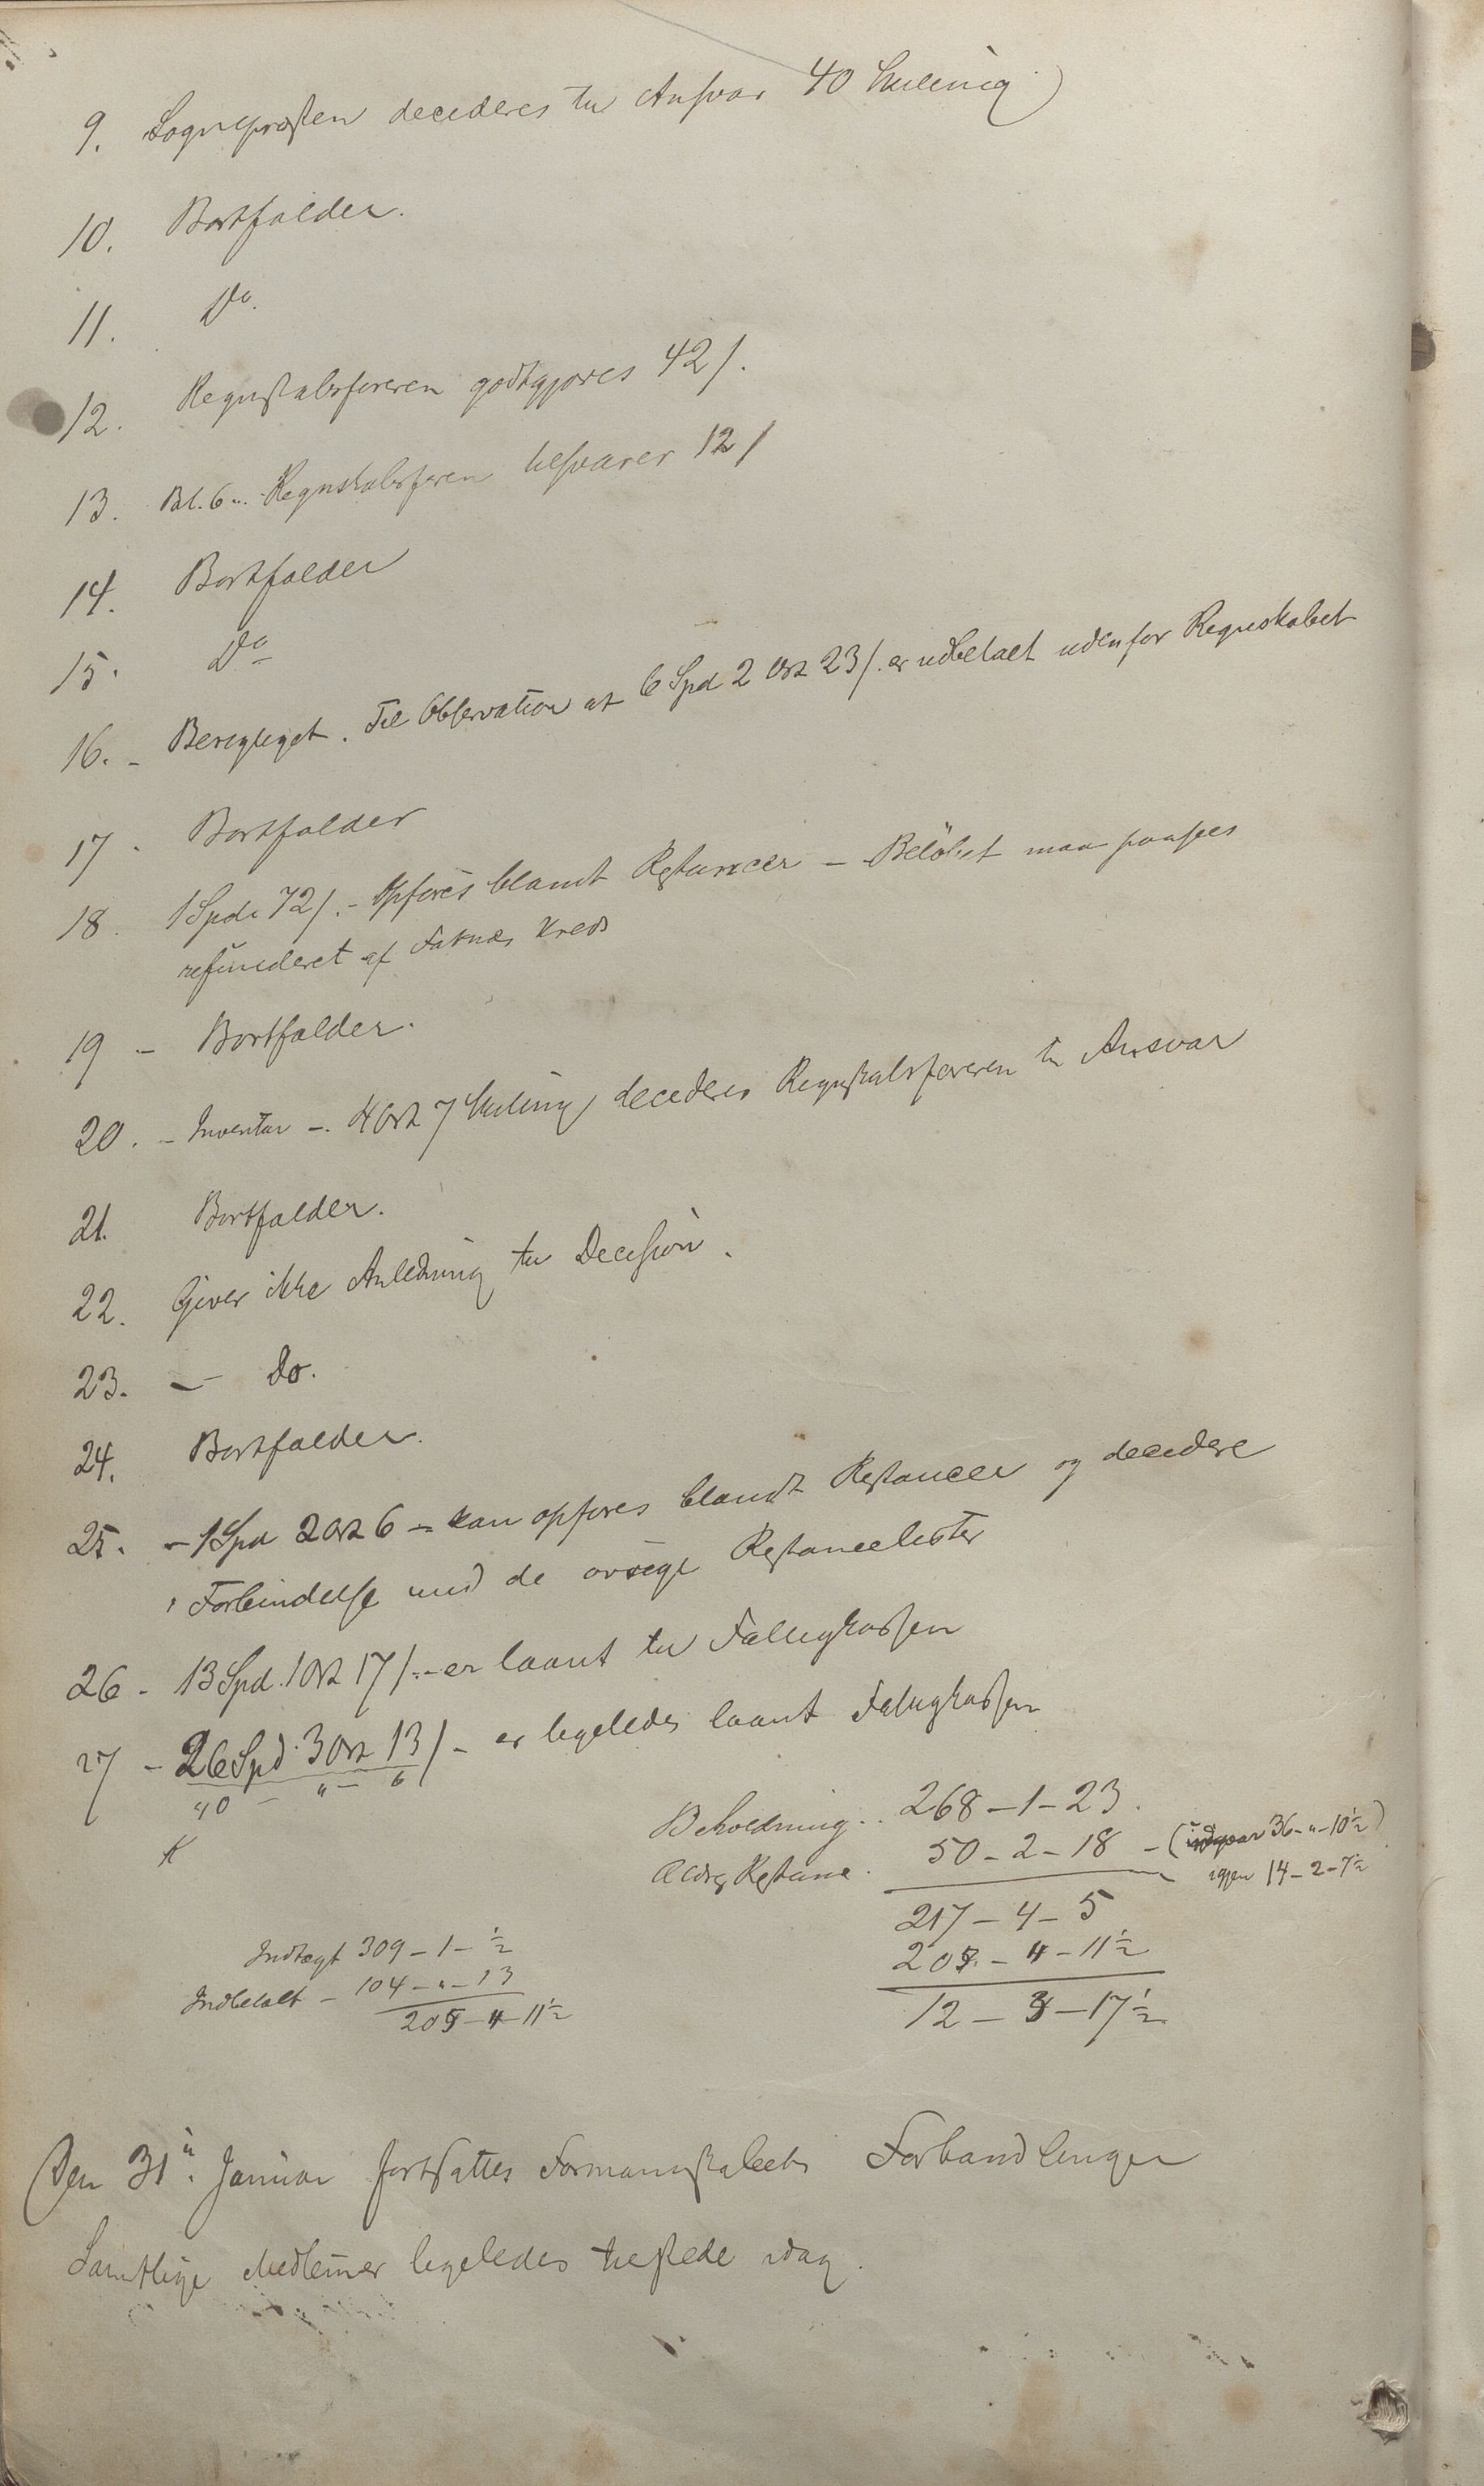 9. Sognepræsten decideres til Ansvar 40 Skilling
10. Bortfalder.
11. Do.
12. Regnskabsføreren godtgjøres 42 /.
13. Bl. 6 .. Regnskabsføren besvarer 12 /
14. Bortfalder
15. Do
16. - Berigtiget. Til Observation at 6 Spd 2 Ort 23 /. er udbetalt udenfor Regnskabet
17. Bortfalder
18. 1 Spd. 72 /. - Opføres blandt Restancer - Beløbet maa paasees
refunderet af Kreds
19 - Bortfalder.
20. - Inventar -. 4 Ort 7 Skilling decideres Regnskabsføreren til Ansvar
21. Bortfalder.
22. Giver ikke Anledning til Decision.
23. - Do.
24. Bortfalder.
25. - 1 Spd 2 Ort 6 - kan opføres blandt Restancer og decidere
i Forbindelse med de øvrige Restancelister
26 - 13 Spd. 1 Ort 17 /. - er laant til Fattigkassen
27 - 26 Spd. 3 Ort 13 / - er ligeledes laant Fattigkassen
40 - " - 6
Beholdning .. 268 - 1 - 23.
Restance. 50 - 2 - 18 - ( 36 - " - 10 1/2)
igjen 14 - 2 - 7 1/2
217 - 4 - 5
205 - 4 - 11 1/2
12 - 3 - 17 1/2
Indtægt 309 - 1 - 1/2
Indbetalt - 104 - " - 13
205 - 4 - 11 1/2
Den 31te Januar fortsattes Formandskabets Forhandlinger
Samtlige Medlemer ligeledes tilstede idag.